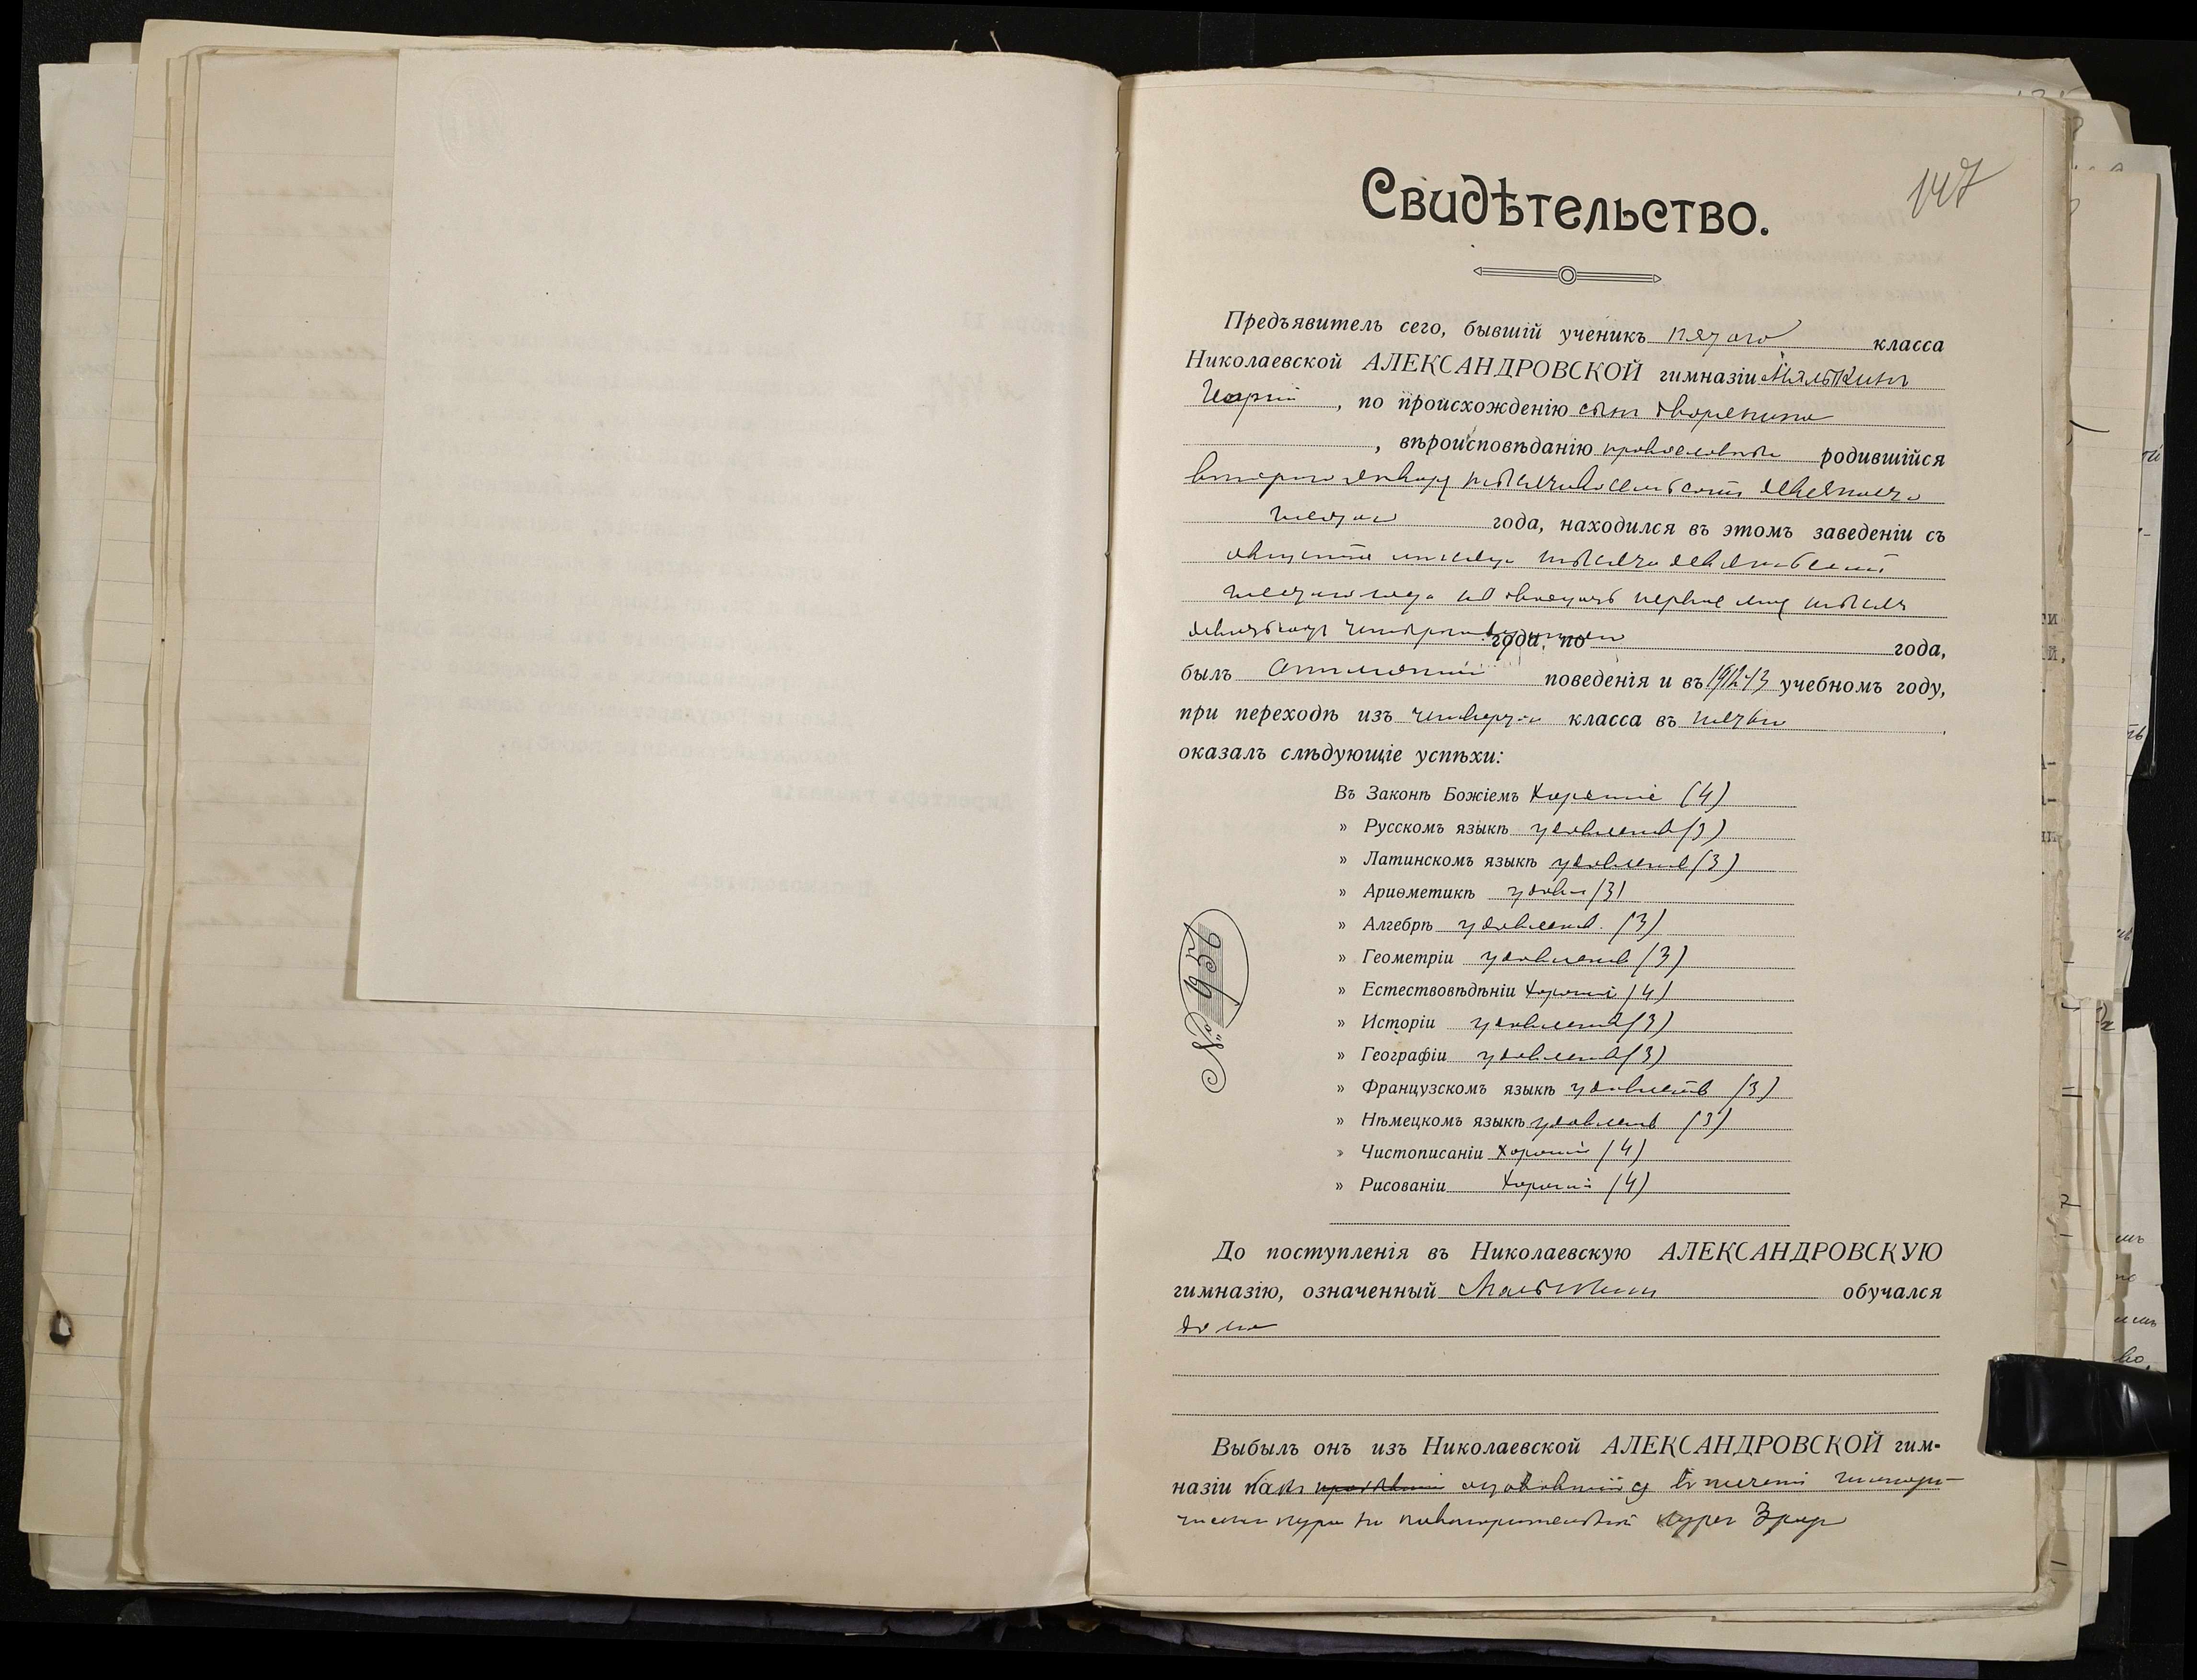 147
Свидѣтельство.
Предъявитель сего, бывшій ученикъ пятаго класса
Николаевской АЛЕКСАНДРОВСКОЙ гимназіи
Георгій, по происхожденію сынъ дворянина
, вѣроисповѣданію православн родившійся
второго января тысяча восемьсотъ девяносто
года, находился въ этомъ заведеніи съ
августа мѣсяца тысяча девятьсотъ
года по двадцать первое мая тысяча
девятьсотъ года, по года,
былъ отличнаго поведенія и въ 1912-13 учебномъ году,
при переходѣ изъ четвертаго класса въ пятый
оказалъ слѣдующіе успѣхи:
Въ Законѣ Божіемъ хорошіе (4)
» Русскомъ языкѣ удовлетв (3)
» Латинскомъ языкѣ удовлетв (3)
» Ариѳметикѣ удовл (3)
» Алгебрѣ удовлетв. (3)
» Геометріи удовлетв (3)
» Естествовѣдѣніи хорошіе (4)
» Исторіи удовлетв (3)
» Географіи удовлетв (3)
» Французскомъ языкѣ удовлетв (3)
» Нѣмецкомъ языкѣ удовлетв (3)
» Чистописаніи хорошіе (4)
» Рисованіи хорошіе (4)
№ 956
До поступленія въ Николаевскую АЛЕКСАНДРОВСКУЮ
гимназію, означенный обучался
дома
Выбылъ онъ изъ Николаевской АЛЕКСАНДРОВСКОЙ гим-
назіи какъ въ теченіи
курсъ